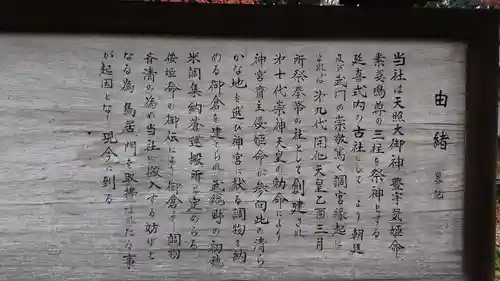 由緒
畧記
当社は天照大御神 豊宇気姫命
素盞嗚尊の三柱を祭神とする
延喜式内の古社にして より朝廷
及び武門の崇敬篤く調宮縁起に
よれば 第九代開化天皇乙酉三月
所祭奉幣の社として創建され
第十代崇神天皇の勅命により
神宮斎主倭姫命が参向此の清ら
かな地を選び神宮に献る調物を納
める御倉を建てられ武総野の初穂
米調集納蒼運搬所と定めらる
倭姫命の御伝により御倉より調物
斉清の為当社に搬入する妨げと
なる為鳥居門を取拂はれたる事
が起因となり現今に到る